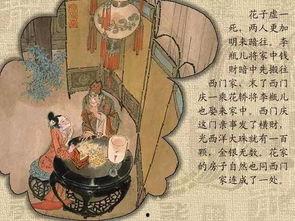 花子虚一
死，两人更加
明来暗往。李
瓶儿将家中钱
财暗中先搬往
西门家，末了西门
庆一乘花轿将李瓶儿
也娶来家中。西门庆
这门亲事发了横财，
光西洋大珠就有一百
颗，金银无数。花家
的房子自然也同西门
家连成了一处。